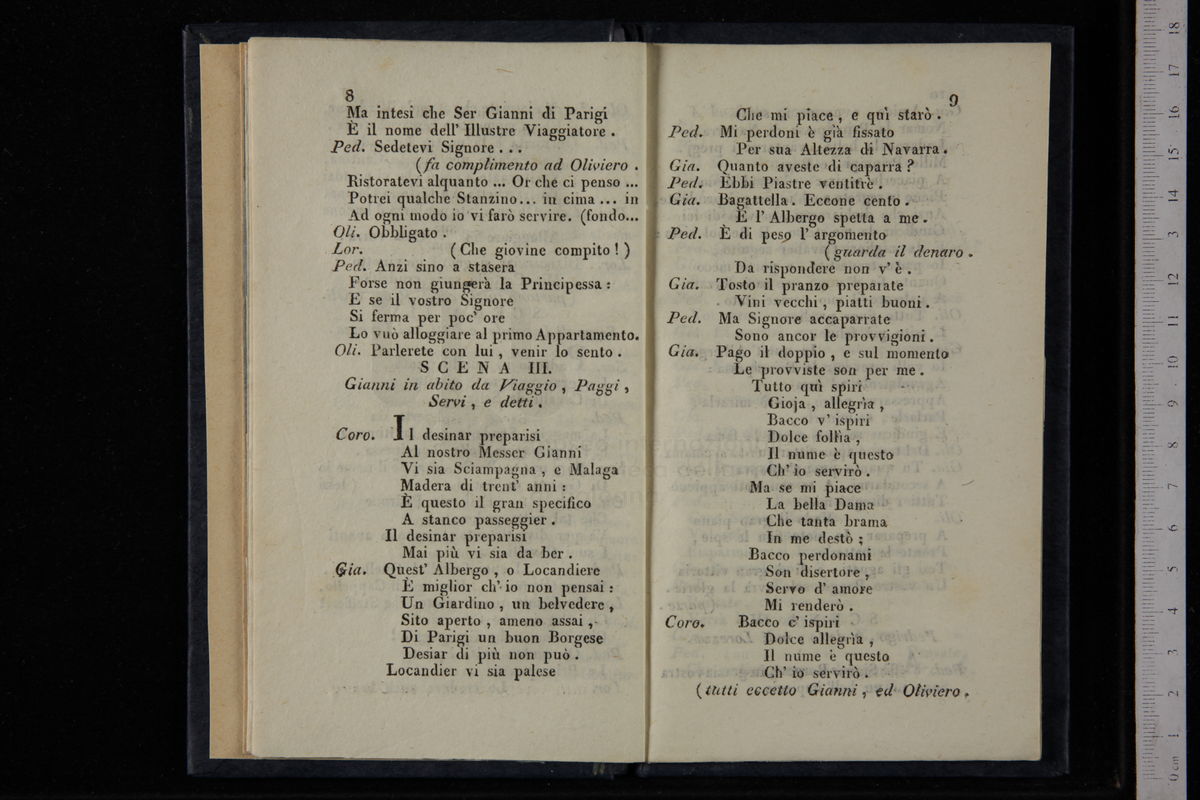 8
Ma intesi che Ser Gianni di Parigi
È il nome dell' Illustre Viaggiatore .
Ped. Sedetevi Signore . . .
(fa complimento ad Oliviero .
Ristoratevi alquanto ... Or che ci penso ...
Potrei qualche Stanzino... in cima ... in
Ad ogni modo io vi farò servire. (fondo...
Oli. Obbligato .
Lor. (Che giovine compito ! )
Ped. Anzi sino a stasera
Forse non giungerà la Principessa :
E se il vostro Signore
Si ferma per poc' ore
Lo vuò alloggiare al primo Appartamento.
Oli. Parlerete con lui , venir lo sento .
SCENA III.
Gianni in abito da Viaggio , Paggi ,
Servi , e detti .
Coro. Il desinar preparisi
Al nostro Messer Gianni
Vi sia Sciampagna , e Malaga
Madera di trent' anni :
È questo il gran specifico
A stanco passeggier .
Il desinar preparisi
Mai più vi sia da ber .
Gia. Quest' Albergo , o Locandiere
È miglior ch' io non pensai :
Un Giardino , un belvedere ,
Sito aperto , ameno assai ,
Di Parigi un buon Borgese
Desiar di più non può .
Locandier vi sia palese
9
Che mi piace , e quì starò .
Ped. Mi perdoni è già fissato
Per sua Altezza di Navarra .
Gia. Quanto aveste di caparra ?
Ped. Ebbi Piastre ventitrè .
Gia. Bagattella . Eccone cento .
E l' Albergo spetta a me .
Ped. È di peso l' argomento
(guarda il denaro .
Da rispondere non v' è .
Gia. Tosto il pranzo preparate
Vini vecchi , piatti buoni .
Ped. Ma Signore accaparrate
Sono ancor le provvigioni .
Gia. Pago il doppio , e sul momento
Le provviste son per me .
Tutto quì spiri
Gioja , allegrìa ,
Bacco v' ispiri
Dolce follìa ,
Il nume è questo
Ch' io servirò .
Ma se mi piace
La bella Dama
Che tanta brama
In me destò ;
Bacco perdonami
Son disertore ,
Servo d' amore
Mi renderò .
Coro. Bacco c' ispiri
Dolce allegrìa ,
Il nume è questo
Ch' io servirò .
(tutti eccetto Gianni , ed Oliviero .
0 cm 1 2 3 4 5 6 7 8 9 10 11 12 13 14 15 16 17 18